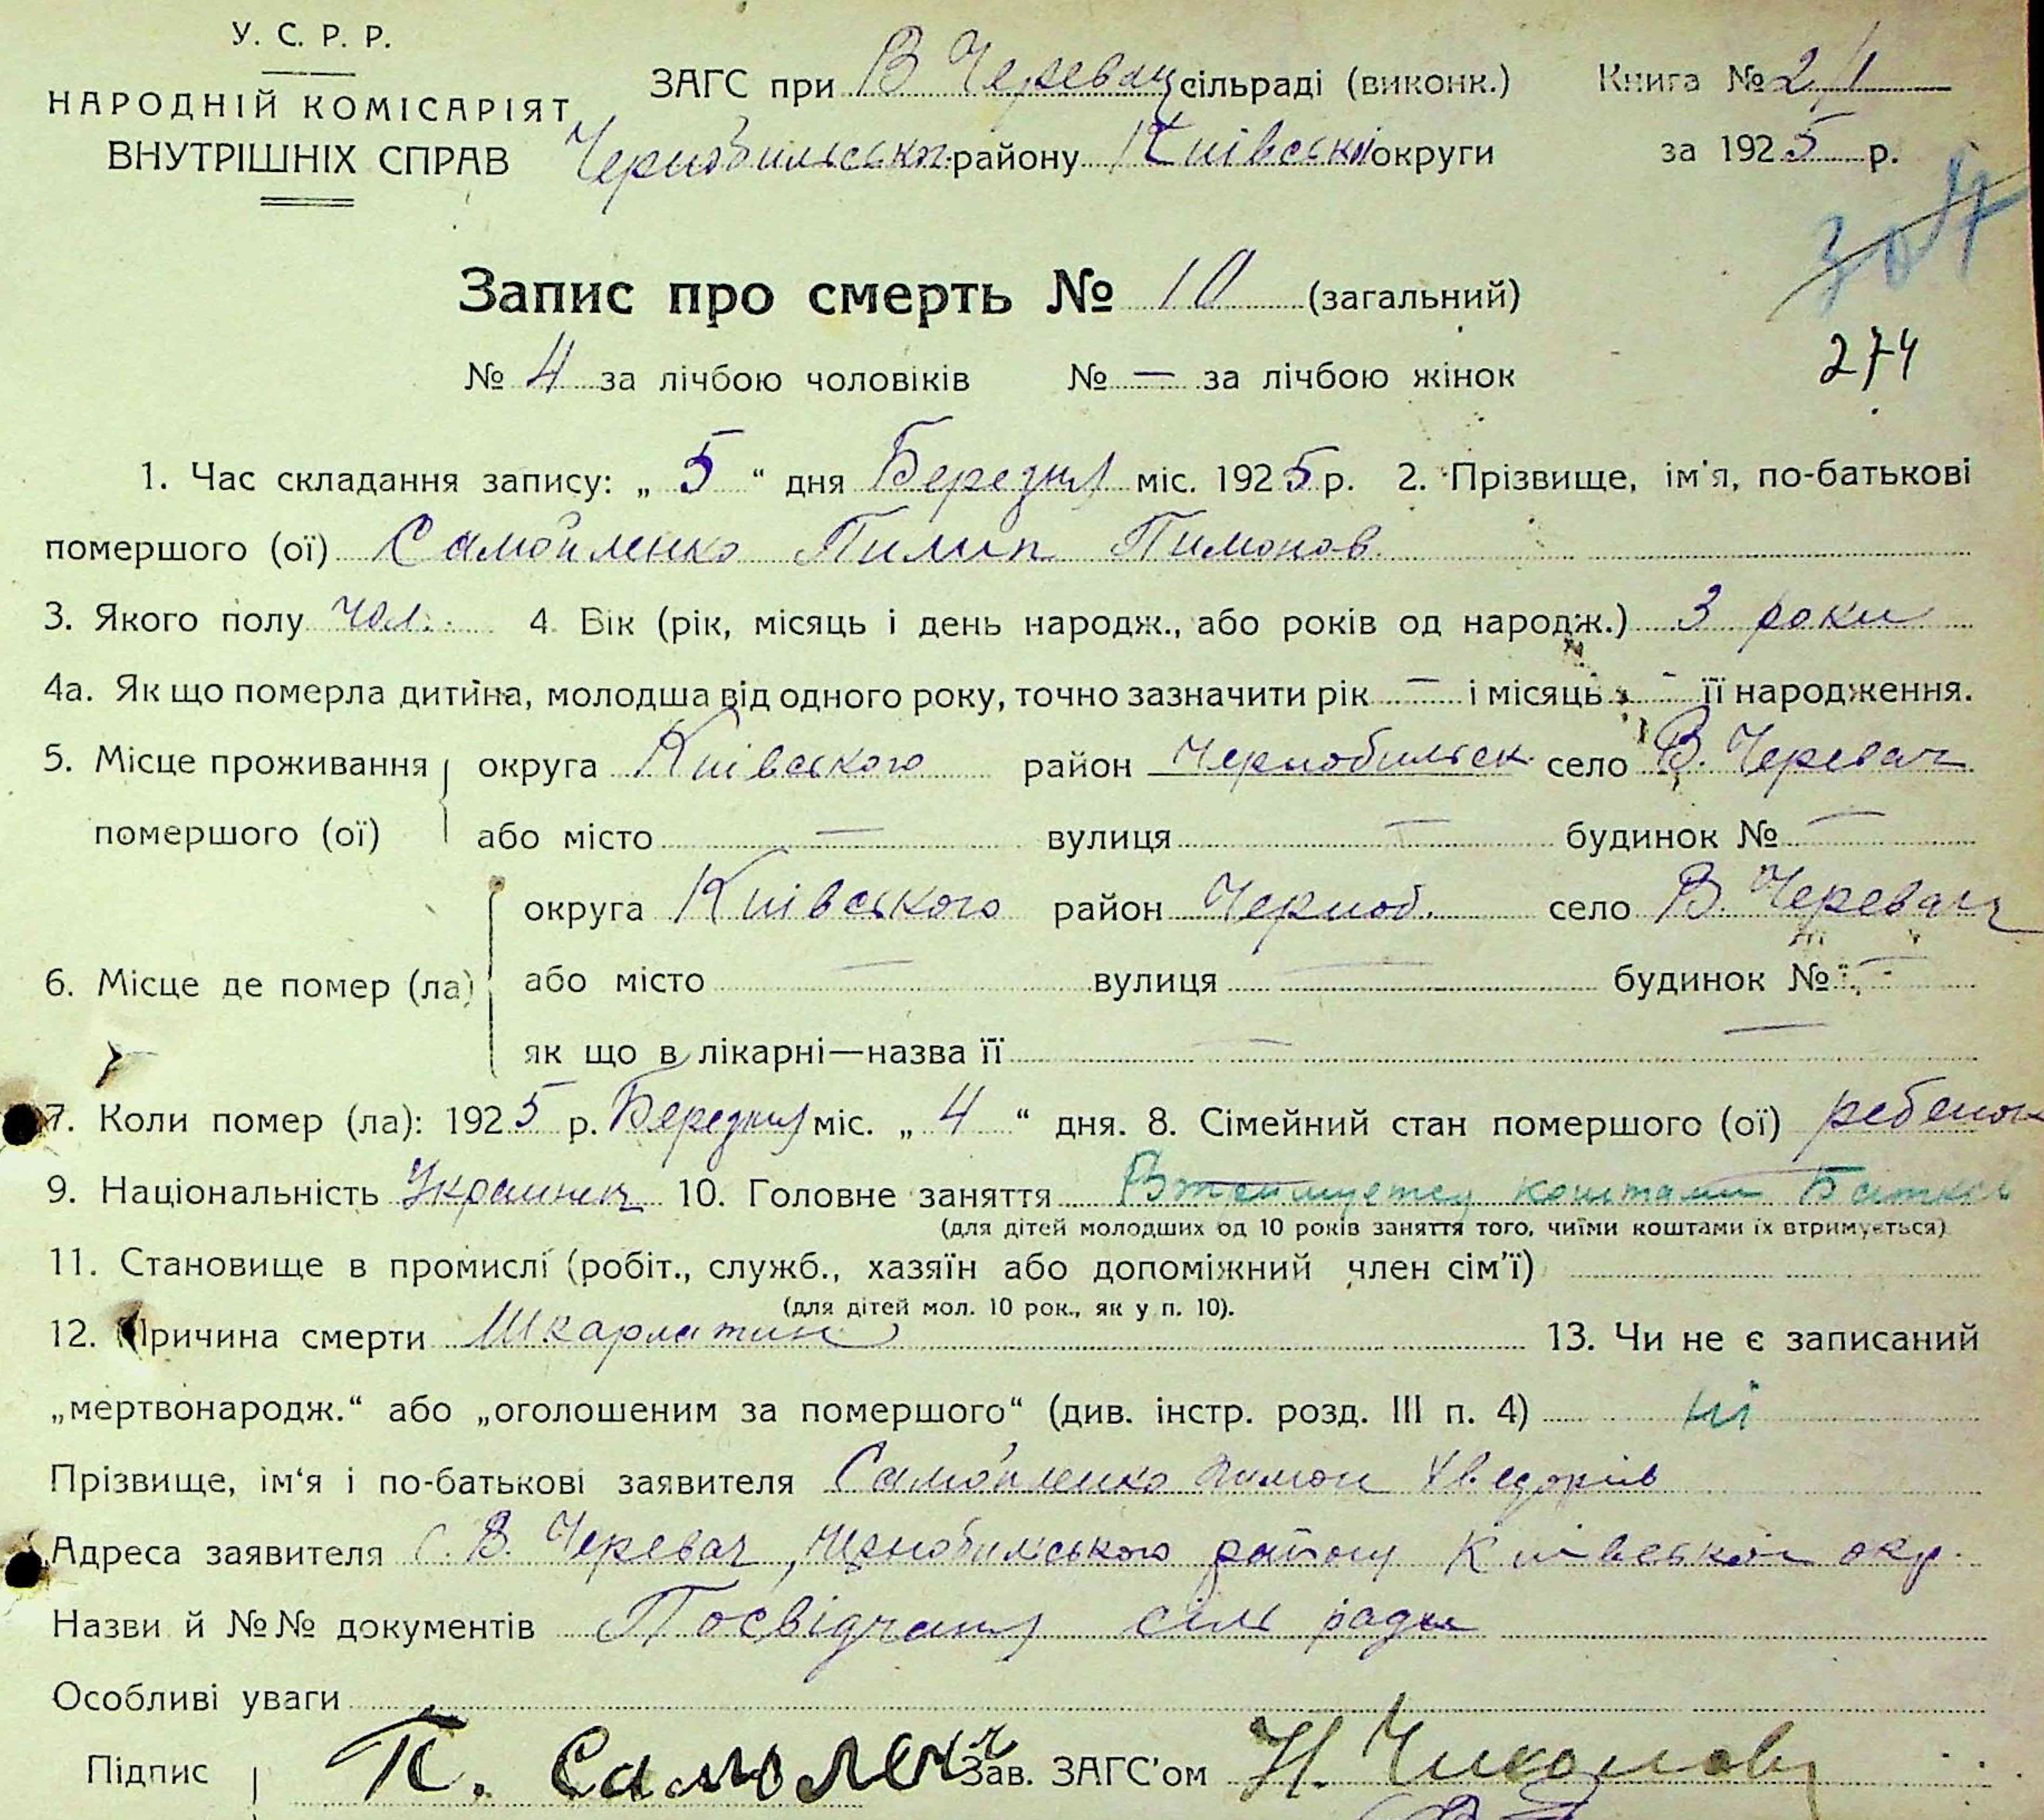 У. С. Р. Р.
НАРОДНІЙ КОМІСАРІЯТ
ВНУТРІШНІХ СПРАВ
ЗАГС при В Черевац сільраді (виконк.)
Чернобильсько районy Київської округи
Книга № 24
за 1925 р.
304
Запис про смерть № 10 (загальний)
274
№ 4 за лічбою чоловіків № — за лічбою жінок
1. Час складання запису: „ 5 “ дня Березня міс. 1925 р. 2. Прізвище, ім'я, по-батькові
помершого (ої) Самойленко Пилип Пимонов
3. Якого полу чол. 4. Вік (рік, місяць і день народж., або років од народж.) 3 роки
4а. Як що померла дитина, молодша від одного року, точно зазначити рік — і місяць — її народження.
5. Місце проживання округа Київського район Чернобильск село В. Черевач
помершого (ої) або місто — вулиця — будинок № —
округа Київського район Черноб. село В. Черевач
6. Місце де помер (ла) або місто — вулиця — будинок № —
як що в лікарні—назва її —
7. Коли помер (ла): 1925 р. Березня міс. „ 4 “ дня. 8. Сімейний стан помершого (ої) ребенок
9. Національність Украинец 10. Головне заняття коштами Батьків
(для дітей молодших од 10 років заняття того, чиїми коштами їх втримується)
11. Становище в промислі (робіт., служб., хазяїн або допоміжний член сім'ї)
(для дітей мол. 10 рок., як у п. 10).
12. Причина смерти Шкарлатина 13. Чи не є записаний
„мертвонародж.“ або „оголошеним за помершого“ (див. інстр. розд. III п. 4) ні
Прізвище, ім'я і по-батькові заявителя Самойленко Пимон Хведорів
Адреса заявителя С. В. Черевач, Чернобильського району Київської окр.
Назви й №№ документів Посвідчання сіль ради
Особливі уваги
Підпис П. Самоленк Зав. ЗАГС'ом Н.